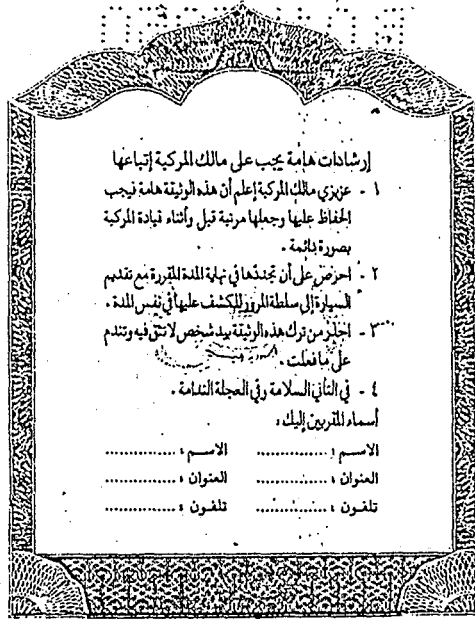 إرشادات هامة يجب على مالك المركبة إتباعها
١ - عزيزي مالك المركبة إعلم أن هذه الوثيقة هامة فيجب
الحفاظ عليها وجعلها مرئية قبل وأثناء قيادة المركبة
بصورة دائمة .
٢ - احرص على أن تجددها في نهاية المدة المقررة مع تقديم
السيارة إلى سلطة المرور للكشف عليها في نفس المدة .
٣ - احذر من ترك هذه الوثيقة بيد شخص لا تثق فيه وتندم
على ما فعلت .
٤ - في التأني السلامة وفي العجلة الندامة .
أسماء المقربين إليك :
الاسم : .............. الاسم : ..............
العنوان : .............. العنوان : ..............
تلفون : .............. تلفون : ..............